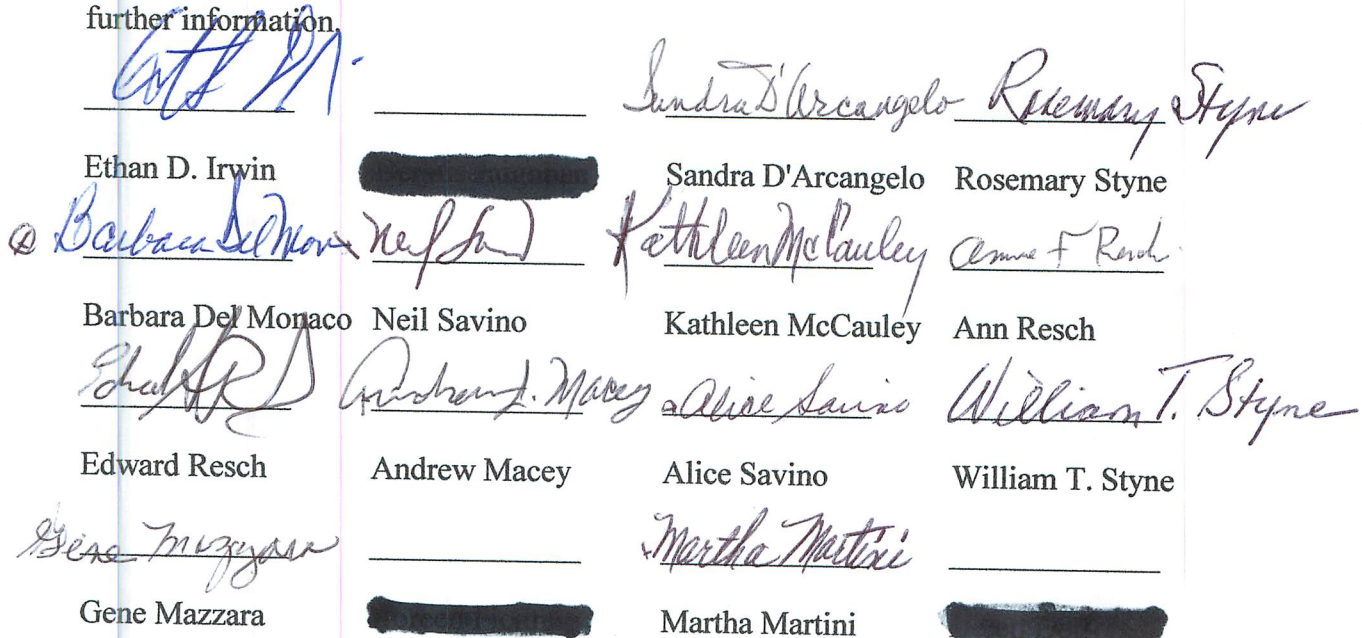 further information,
Sandra D'Arcangelo Rosemary Styne
Ethan D. Irwin Sandra D'Arcangelo Rosemary Styne
Barbara Del Mon Neil Kathleen McCauley Anne F Resch
Barbara Del Monaco Neil Savino Kathleen McCauley Ann Resch
Andrew J. Macey Alice Savino William T. Styne
Edward Resch Andrew Macey Alice Savino William T. Styne
Gene Mazzara Martha Martini
Gene Mazzara Martha Martini